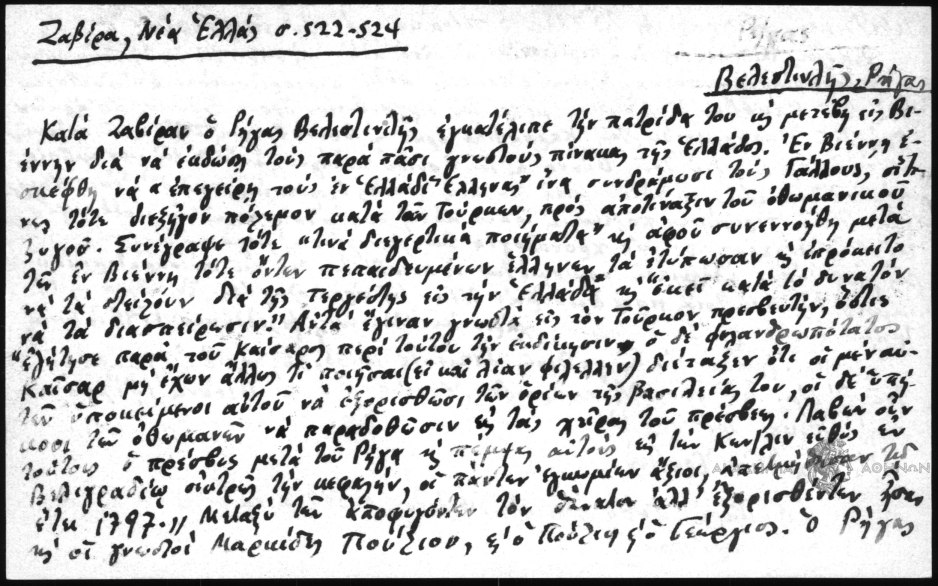 Ζαβίρα, Νέα Ἑλλάς σ. 522-524
Ρήγας
Βελεστινλῆς, Ρήγας
Κατά Ζαβίραν ὁ Ρήγας Βελεστινλῆς ἐγκατέλιπε τήν πατρίδα του κ μετέβη εἰς Βι-
έννην διά νά ἐκδώσῃ τούς παρά πᾶσι γνωστούς πίνακας τῆς Ἑλλάδος. Ἐν Βιέννῃ ἐ-
σκέφθη νά "ἐπεγείρῃ τούς ἐν Ἑλλάδι Ἕλληνας" ἵνα συνδράμωσι τούς Γάλλους, οἵτι-
νες τότε διεξῆγον πόλεμον κατά τῶν Τούρκων, πρός ἀποτίναξιν τοῦ ὀθωμανικοῦ
ζυγοῦ. Συνέγραψε τότε "τινά διεγερτικά ποιήματα" κ ἀφοῦ συνεννοήθη μετά
τῶν ἐν Βιέννῃ τότε ὄντων πεπαιδευμένων ἑλλήνων, τά ἐτύπωσαν κ ἐπρόκειτο
νά τά στείλουν διά τῆς Τεργέστης εἰς τήν Ἑλλάδα κ "ἐκεῖ κατά τό δυνατόν
νά τά διασπείρωσιν." Αὐτά ἔγιναν γνωστά εἰς τόν Τοῦρκον πρεσβευτήν, ὅστις
"ἐζήτησε παρά τοῦ Καίσαρος περί τούτου τήν ἐκδίκησιν, ὁ δέ φιλανθρωπότατος
Καῖσαρ μή ἔχων ἄλλως τί ποιῆσαι (εἰ καί λίαν φιλέλλην) διέταξεν ὅτι οἱ μέν αὐ-
τῶν ὑποκείμενοι αὐτοῦ νά ἐξορισθῶσι τῶν ὁρίων τῆς βασιλείας του, οἱ δέ ὑπή-
κοοι τῶν ὀθωμανῶν νά παραδοθῶσιν εἰς τάς χεῖρας τοῦ πρέσβεως. Λαβών οὖν
τούτους ὁ πρέσβυς μετά τοῦ Ρήγα κ πέμψας αὐτούς εἰς τήν Κων/λιν εὐθύς ἐν
Βελιγραδίῳ τήν κεφαλήν, οἱ πάντων ἐγκωμίων ἄξιοι, τῷ
ἔτει 1797.,, Μεταξύ τῶν ἀποφυγόντων τόν θάνατον ἀλλ' ἐξορισθέντων ἦσαν
κ οἱ γνωστοί Μαρκίδῃ Πούλιου, ὁ Πούλιος κ ὁ Γεώργιος. Ὁ Ρήγας